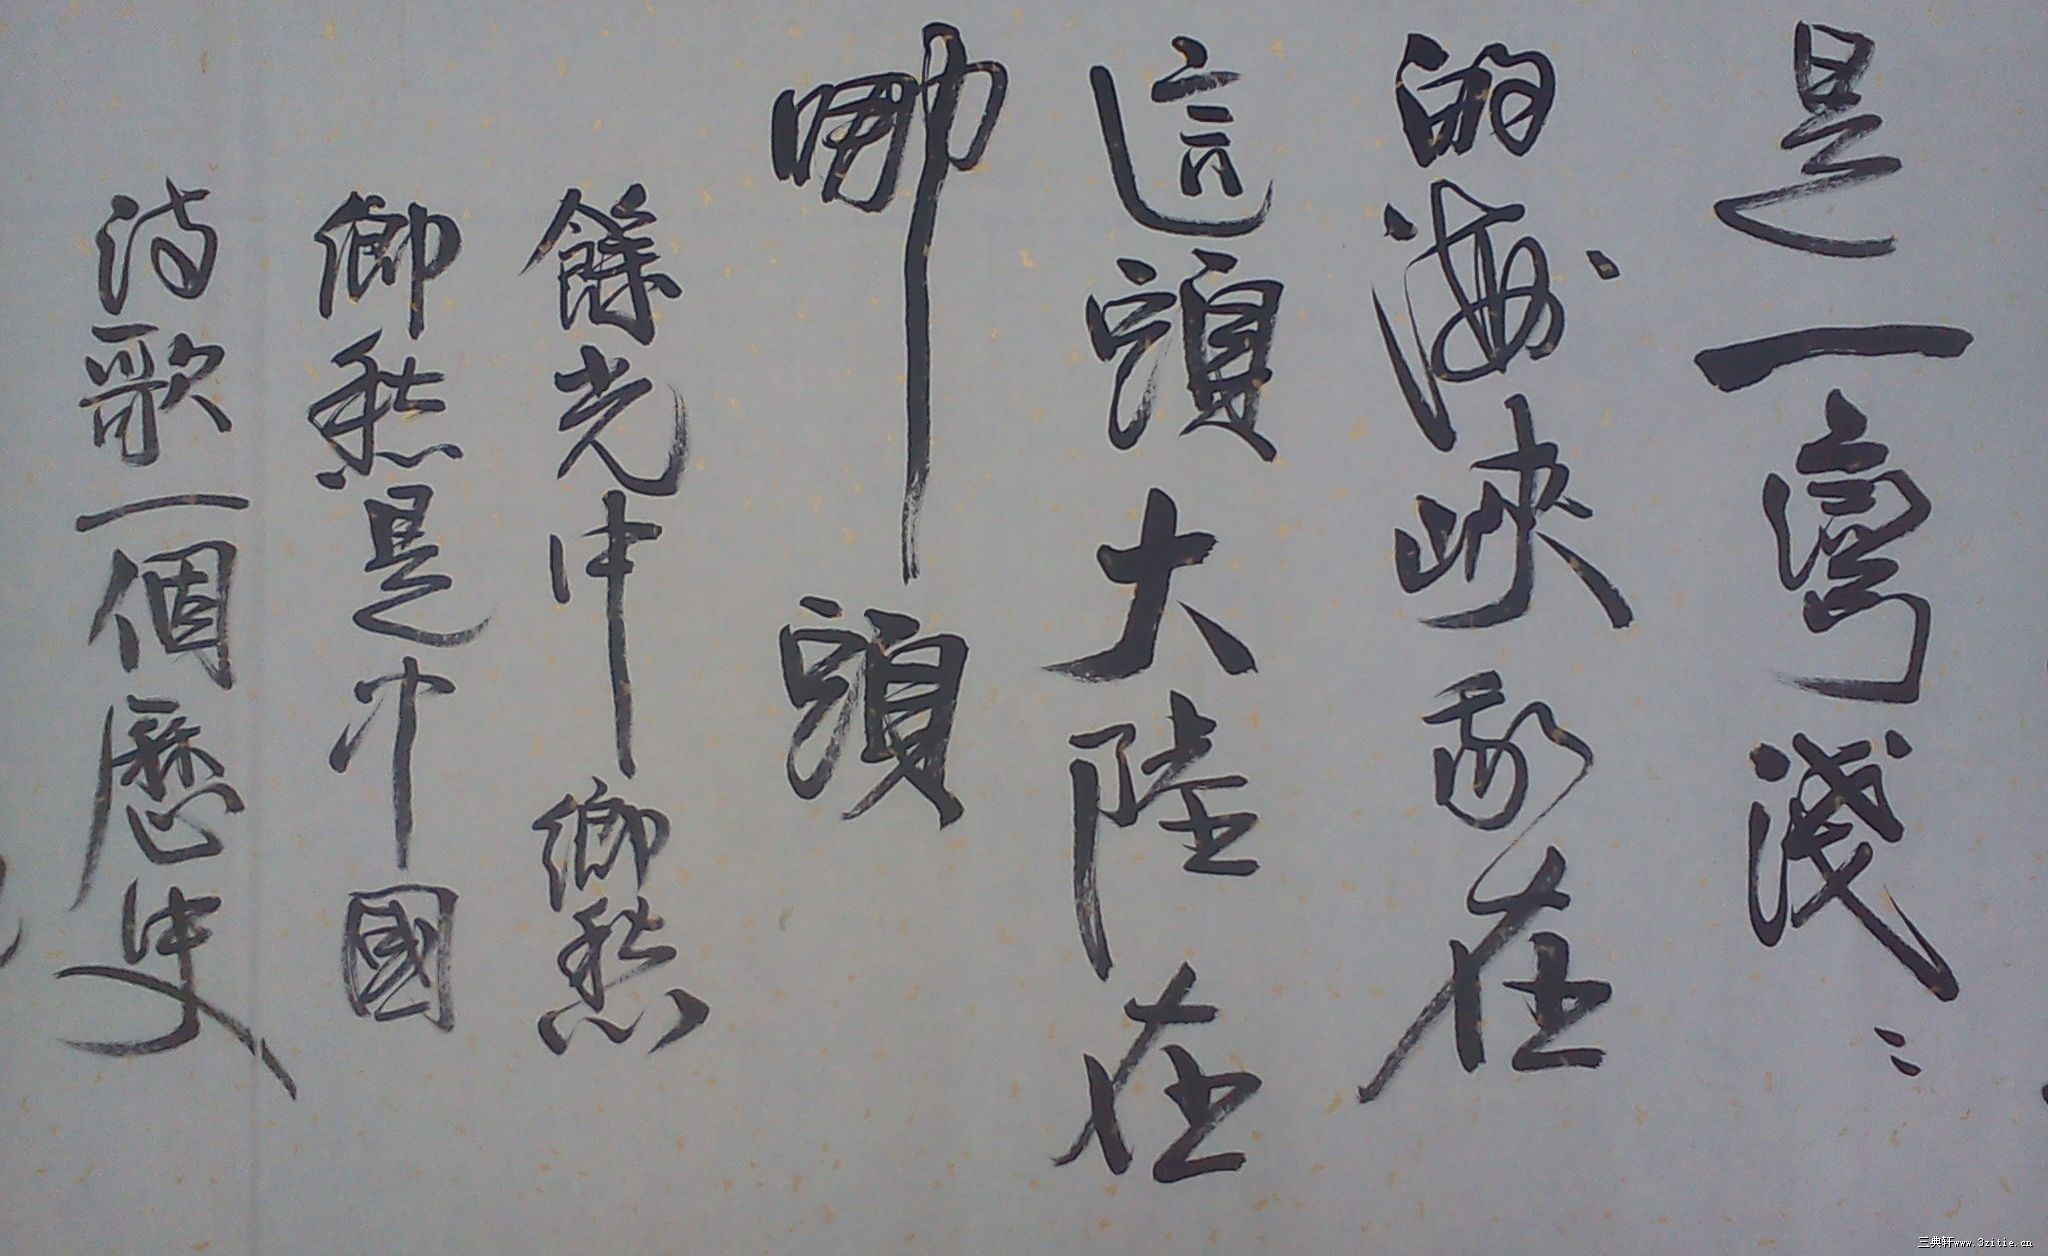 是一彎淺〻
的海峽我在
這頭大陸在
哪頭
餘光中鄉愁
鄉愁是中國
詩歌一個歷史
三典轩www.3zitie.cn